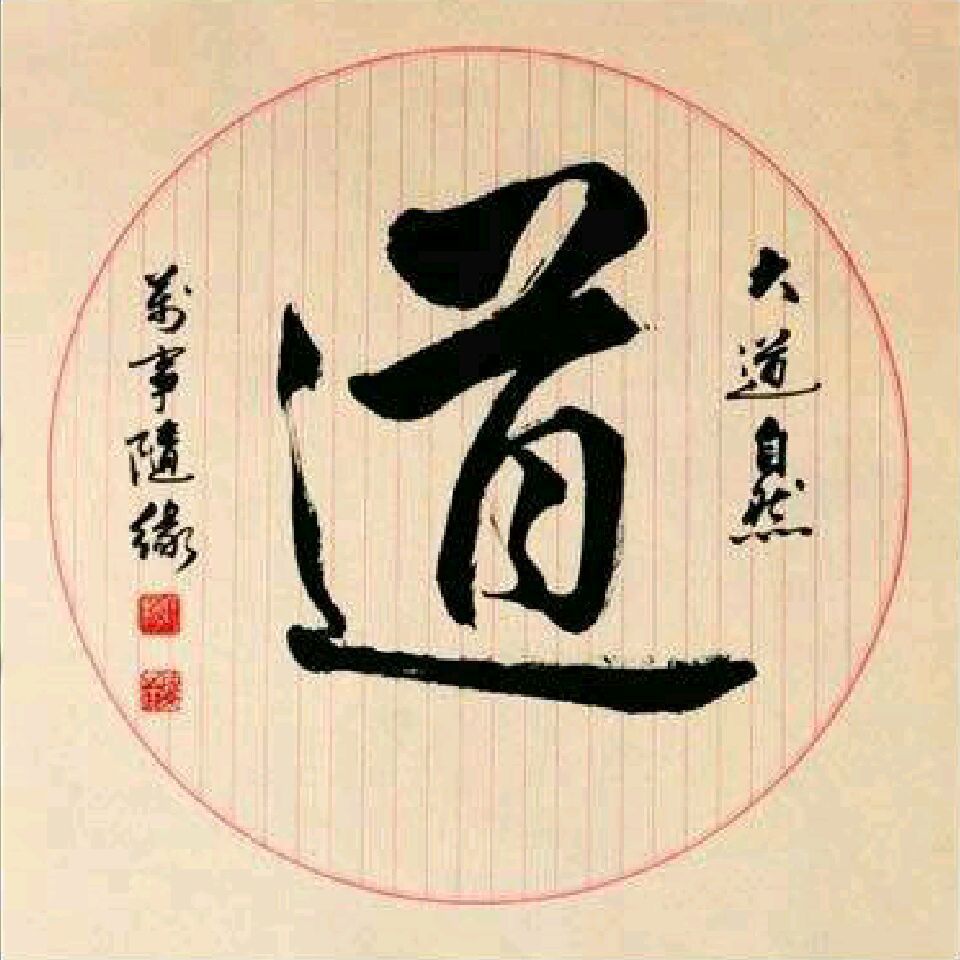 大道自然
道
萬事隨緣